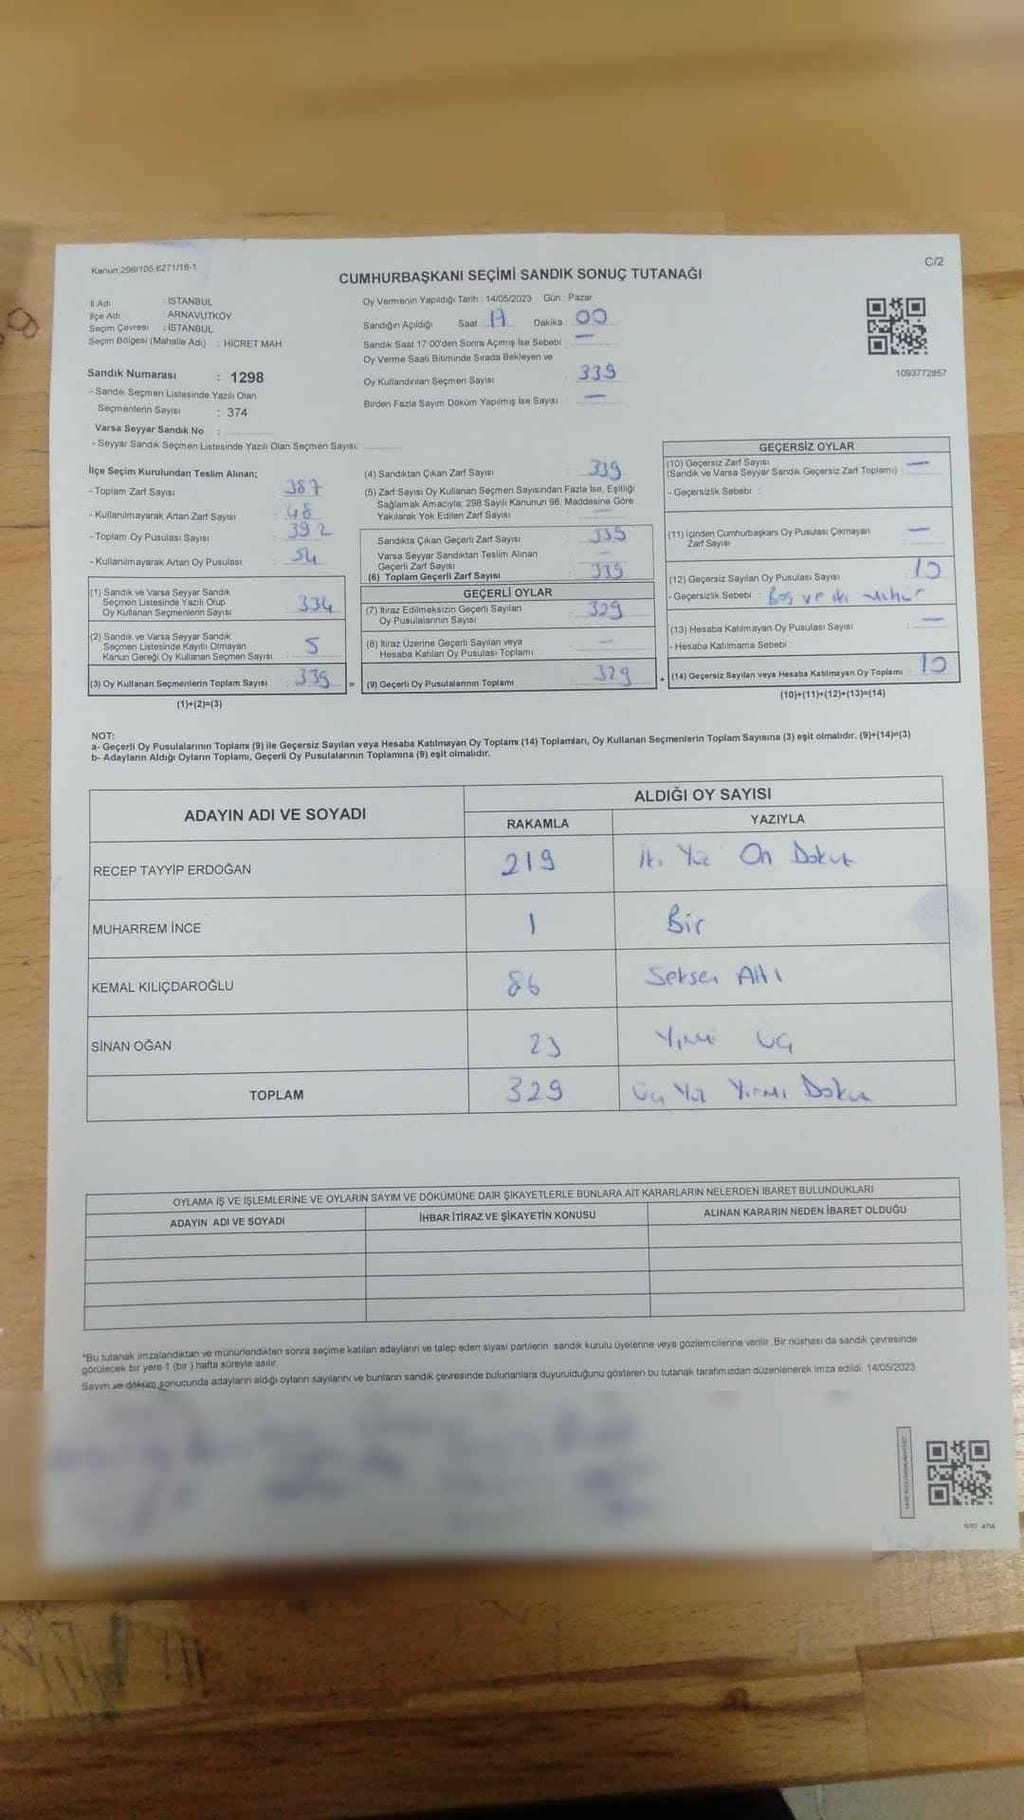 Kanun:298/105,6271/18-1
C/2
CUMHURBAŞKANI SEÇİMİ SANDIK SONUÇ TUTANAĞI
İl Adı : İSTANBUL
İlçe Adı : ARNAVUTKÖY
Seçim Çevresi : İSTANBUL
Seçim Bölgesi (Mahalle Adı) : HİCRET MAH
Oy Vermenin Yapıldığı Tarih : 14/05/2023 Gün : Pazar
Sandığın Açıldığı Saat 17 Dakika : 00
Sandık Saat 17:00'den Sonra Açımış İse Sebebi : —
Oy Verme Saati Bitiminde Sırada Bekleyen ve
Oy Kullandırılan Seçmen Sayısı : 339
Birden Fazla Sayım Döküm Yapılmış İse Sayısı : —
1093772857
Sandık Numarası : 1298
- Sandık Seçmen Listesinde Yazılı Olan
Seçmenlerin Sayısı : 374
Varsa Seyyar Sandık No :
- Seyyar Sandık Seçmen Listesinde Yazılı Olan Seçmen Sayısı:
İlçe Seçim Kurulundan Teslim Alınan;
- Toplam Zarf Sayısı : 387
- Kullanılmayarak Artan Zarf Sayısı : 48
- Toplam Oy Pusulası Sayısı : 392
- Kullanılmayarak Artan Oy Pusulası : 54
(1) Sandık ve Varsa Seyyar Sandık
Seçmen Listesinde Yazılı Olup
Oy Kullanan Seçmenlerin Sayısı : 334
(2) Sandık ve Varsa Seyyar Sandık
Seçmen Listesinde Kayıtlı Olmayan
Kanun Gereği Oy Kullanan Seçmen Sayısı : 5
(3) Oy Kullanan Seçmenlerin Toplam Sayısı : 339 =
(1)+(2)=(3)
(4) Sandıktan Çıkan Zarf Sayısı : 339
(5) Zarf Sayısı Oy Kullanan Seçmen Sayısından Fazla İse, Eşitliği
Sağlamak Amacıyla, 298 Sayılı Kanunun 98. Maddesine Göre
Yakılarak Yok Edilen Zarf Sayısı : —
Sandıkta Çıkan Geçerli Zarf Sayısı : 339
Varsa Seyyar Sandıktan Teslim Alınan
Geçerli Zarf Sayısı : —
(6) Toplam Geçerli Zarf Sayısı : 339
GEÇERLİ OYLAR
(7) İtiraz Edilmeksizin Geçerli Sayılan
Oy Pusulalarının Sayısı : 329
(8) İtiraz Üzerine Geçerli Sayılan veya
Hesaba Katılan Oy Pusulası Toplamı : —
(9) Geçerli Oy Pusulalarının Toplamı : 329 +
GEÇERSİZ OYLAR
(10) Geçersiz Zarf Sayısı
(Sandık ve Varsa Seyyar Sandık Geçersiz Zarf Toplamı) : —
- Geçersizlik Sebebi :
(11) İçinden Cumhurbaşkanı Oy Pusulası Çıkmayan
Zarf Sayısı : —
(12) Geçersiz Sayılan Oy Pusulası Sayısı : 10
- Geçersizlik Sebebi : Boş ve iki mühür
(13) Hesaba Katılmayan Oy Pusulası Sayısı : —
- Hesaba Katılmama Sebebi :
(14) Geçersiz Sayılan veya Hesaba Katılmayan Oy Toplamı : 10
(10)+(11)+(12)+(13)=(14)
NOT:
a- Geçerli Oy Pusulalarının Toplamı (9) ile Geçersiz Sayılan veya Hesaba Katılmayan Oy Toplamı (14) Toplamları, Oy Kullanan Seçmenlerin Toplam Sayısına (3) eşit olmalıdır. (9)+(14)=(3)
b- Adayların Aldığı Oyların Toplamı, Geçerli Oy Pusulalarının Toplamına (9) eşit olmalıdır.
ADAYIN ADI VE SOYADI
ALDIĞI OY SAYISI
RAKAMLA YAZIYLA
RECEP TAYYİP ERDOĞAN 219 İki Yüz On Dokuz
MUHARREM İNCE 1 Bir
KEMAL KILIÇDAROĞLU 86 Seksen Altı
SİNAN OĞAN 23 Yirmi üç
TOPLAM 329 Üç Yüz Yirmi Dokuz
OYLAMA İŞ VE İŞLEMLERİNE VE OYLARIN SAYIM VE DÖKÜMÜNE DAİR ŞİKAYETLERLE BUNLARA AİT KARARLARIN NELERDEN İBARET BULUNDUKLARI
ADAYIN ADI VE SOYADI İHBAR İTİRAZ VE ŞİKAYETİN KONUSU ALINAN KARARIN NEDEN İBARET OLDUĞU
*Bu tutanak imzalandıktan ve mühürlendikten sonra seçime katılan adayların ve talep eden siyasi partilerin sandık kurulu üyelerine veya gözlemcilerine verilir. Bir nüshası da sandık çevresinde
görülecek bir yere 1 (bir) hafta süreyle asılır.
Sayım ve döküm sonucunda adayların aldığı oyların sayılarını ve bunların sandık çevresinde bulunanlara duyurulduğunu gösteren bu tutanak tarafımızdan düzenlenerek imza edildi. 14/05/2023